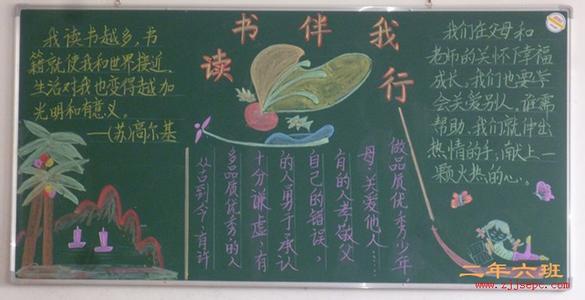 读书伴我行
我读书越多,书
籍就使我和世界接近,
生活对我也变得越加
光明和有意义。
——(苏)高尔基
从古到今,有许
多品质优秀的人
十分谦虚,有
的人勇于承认
自己的错误,
有的人孝敬父
母,关爱他人……
做品质优秀少年
我们在父母和
老师的关怀下幸福
成长。我们也要学
会关爱别人。谁需
帮助,我们就伸出
热情的手,献上一
颗火热的心。
二年六班
www.zjjsepc.com